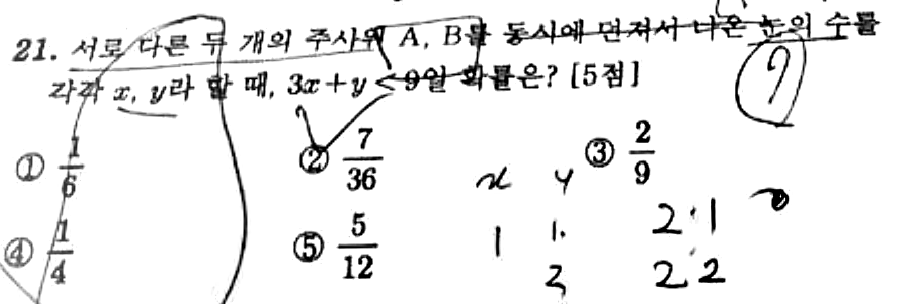 21. 서로 다른 두 개의 주사위 A, B를 동시에 던져서 나온 눈의 수를
각각 x, y라 할 때, 3x+y<9일 확률은? [5점]
① 1/6 ② 7/36 ③ 2/9
④ 1/4 ⑤ 5/12
x y
1 1. 2:1
2:2